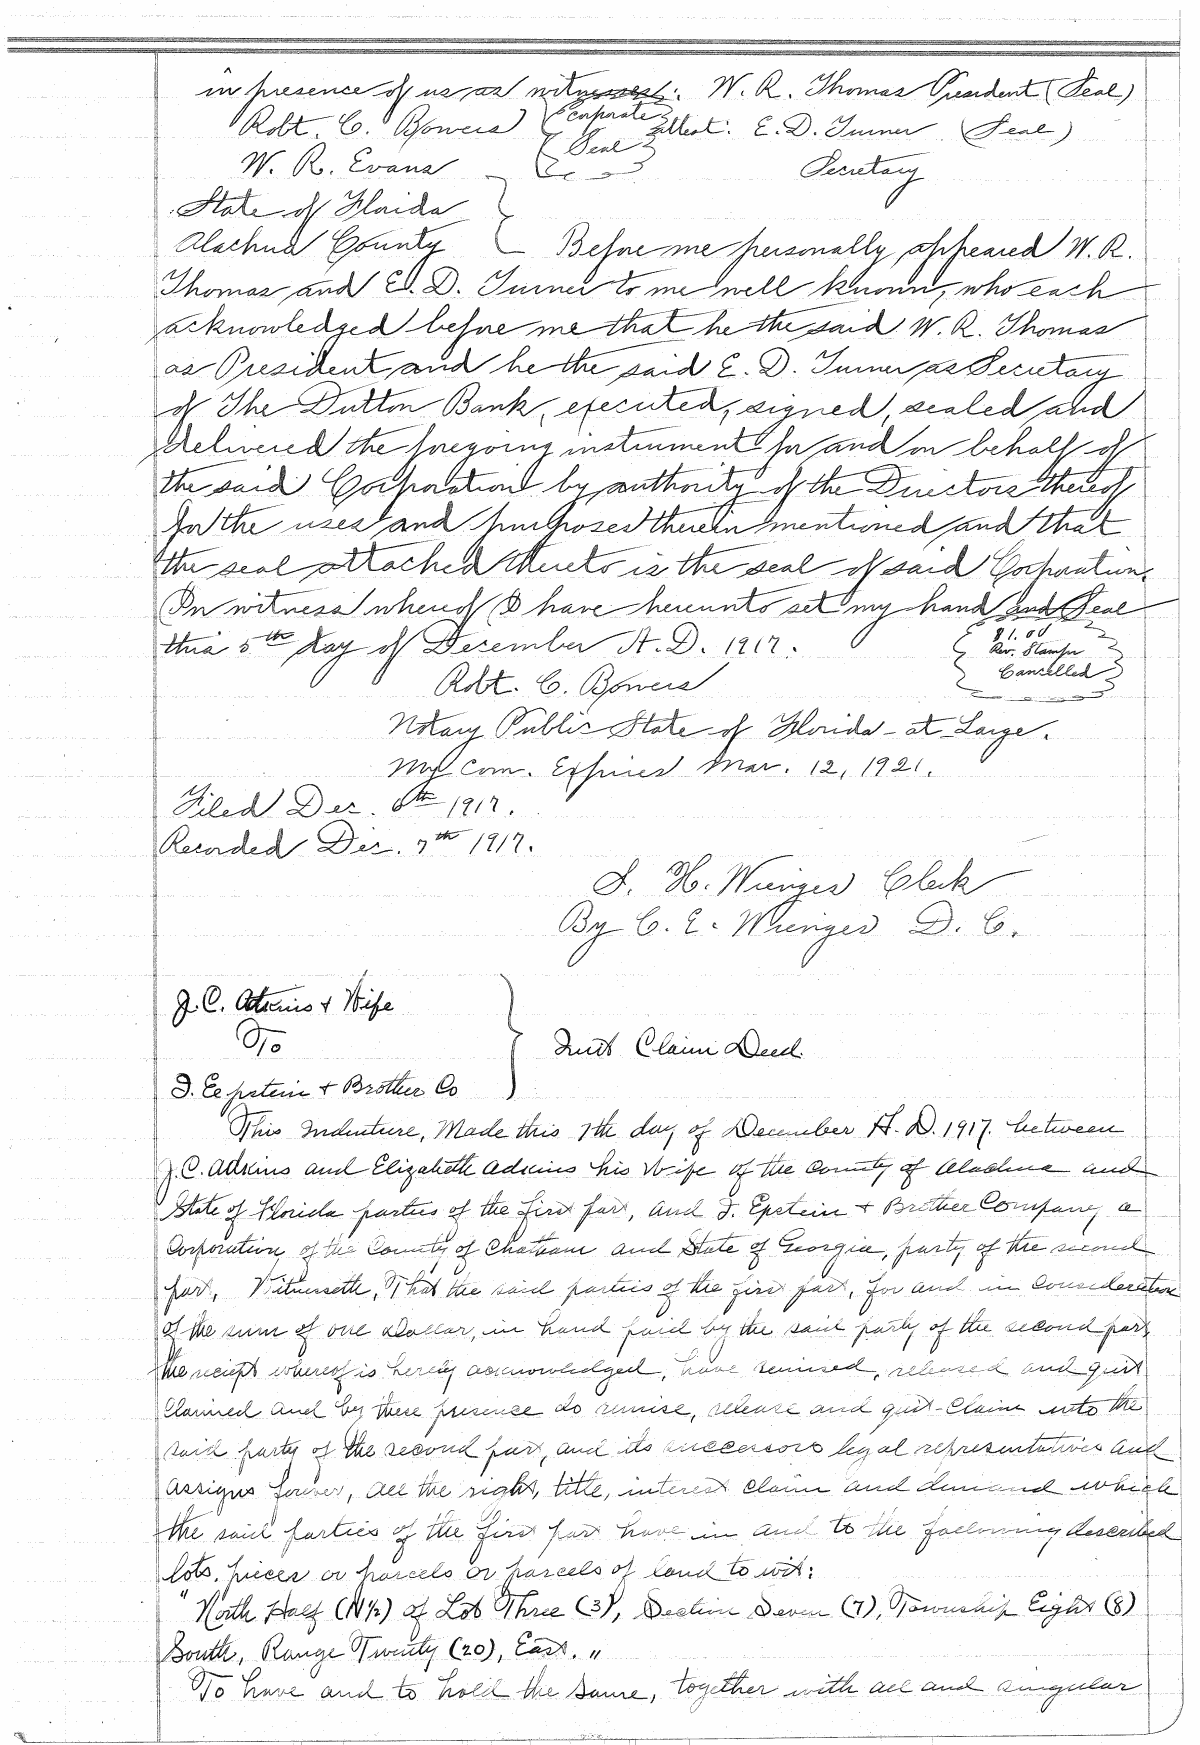 in presence of us as witnesses: W. R. Thomas President (Seal)
Robt. C. Bowers (Corporate Attest: E. D. Turner (Seal)
W. R. Evans Seal Secretary
State of Florida
Alachua County Before me personally appeared W. R.
Thomas and E. D. Turner to me well known, who each
acknowledged before me that he the said W. R. Thomas
as President and he the said E. D. Turner as Secretary
of The Dutton Bank, executed, signed, sealed and
delivered the foregoing instrument for and on behalf of
the said Corporation by authority of the Directors thereof
for the uses and purposes therein mentioned and that
the seal attached thereto is the seal of said Corporation.
In witness whereof I have hereunto set my hand and Seal
this 5th day of December A. D. 1917.
$1.00
Rev. Stamps
Cancelled
Robt. C. Bowers
Notary Public State of Florida - at Large.
My Com. Expires Mar. 12, 1921.
Filed Dec. 6th 1917.
Recorded Dec. 7th 1917.
S. H. Wienges Clerk
By C. E. Wienges D. C.
J. C. Adkins & Wife
To
Quit Claim Deed.
I. Eepstein & Brother Co
This Indenture, Made this 7th day of December A. D. 1917. between
J. C. Adkins and Elizabeth Adkins his Wife of the County of Alachua and
State of Florida parties of the first part, and I. Epstein & Brother Company a
Corporation of the County of Chatham and State of Georgia, party of the second
part, Witnesseth, That the said parties of the first part, for and in consideration
of the sum of one Dollar, in hand paid by the said party of the second part
the receipt whereof is hereby acknowledged, have remised, released and quit
claimed and by these presence do remise, release and quit-claim unto the
said party of the second part, and its successors legal representatives and
assigns forever, all the right, title, interest claim and demand which
the said parties of the first part have in and to the following described
lots, pieces or parcels or parcels of land to wit:
"North Half (N½) of Lot Three (3), Section Seven (7), Township Eight (8)
South, Range Twenty (20), East."
To have and to hold the same, together with all and singular